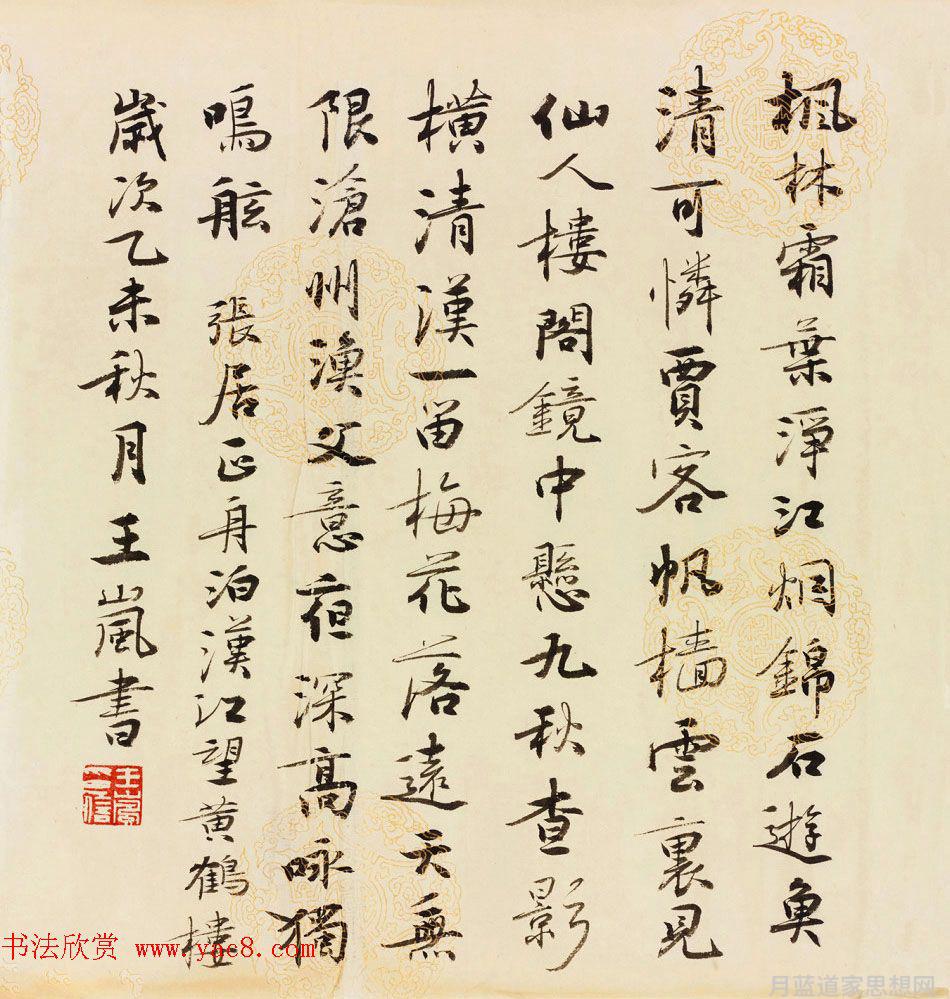 楓林霜葉淨江烟錦石遊魚
清可憐賈客帆檣雲裏見
仙人樓閣鏡中懸九秋查影
橫清漢一笛梅花落遠天無
限滄州漁父意夜深高咏獨
鳴舷 張居正舟泊漢江望黃鶴樓
歲次乙未秋月王嵐書
书法欣赏 www.yac8.com
月蓝道家思想网